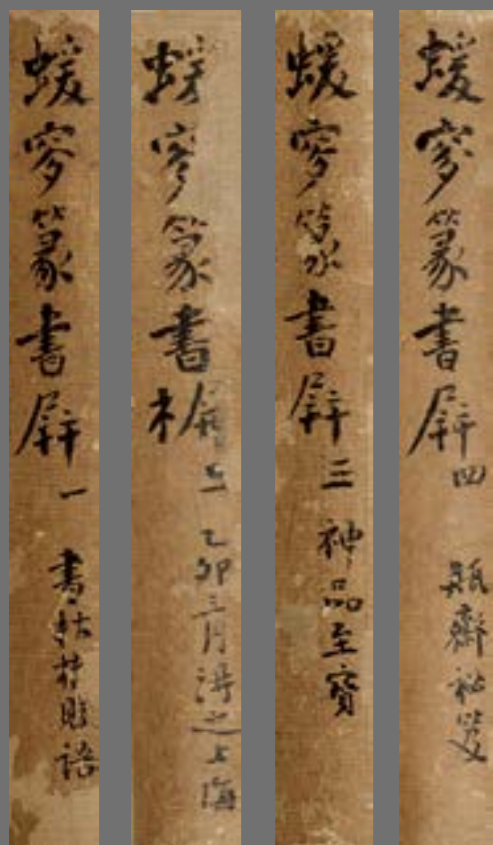 蝯叜篆書屏一
書枯樹賦語
蝯叜篆書屏二
乙卯三月得之上海
蝯叜篆書屏三
神品至寶
蝯叜篆書屏四
瓶齋祕笈